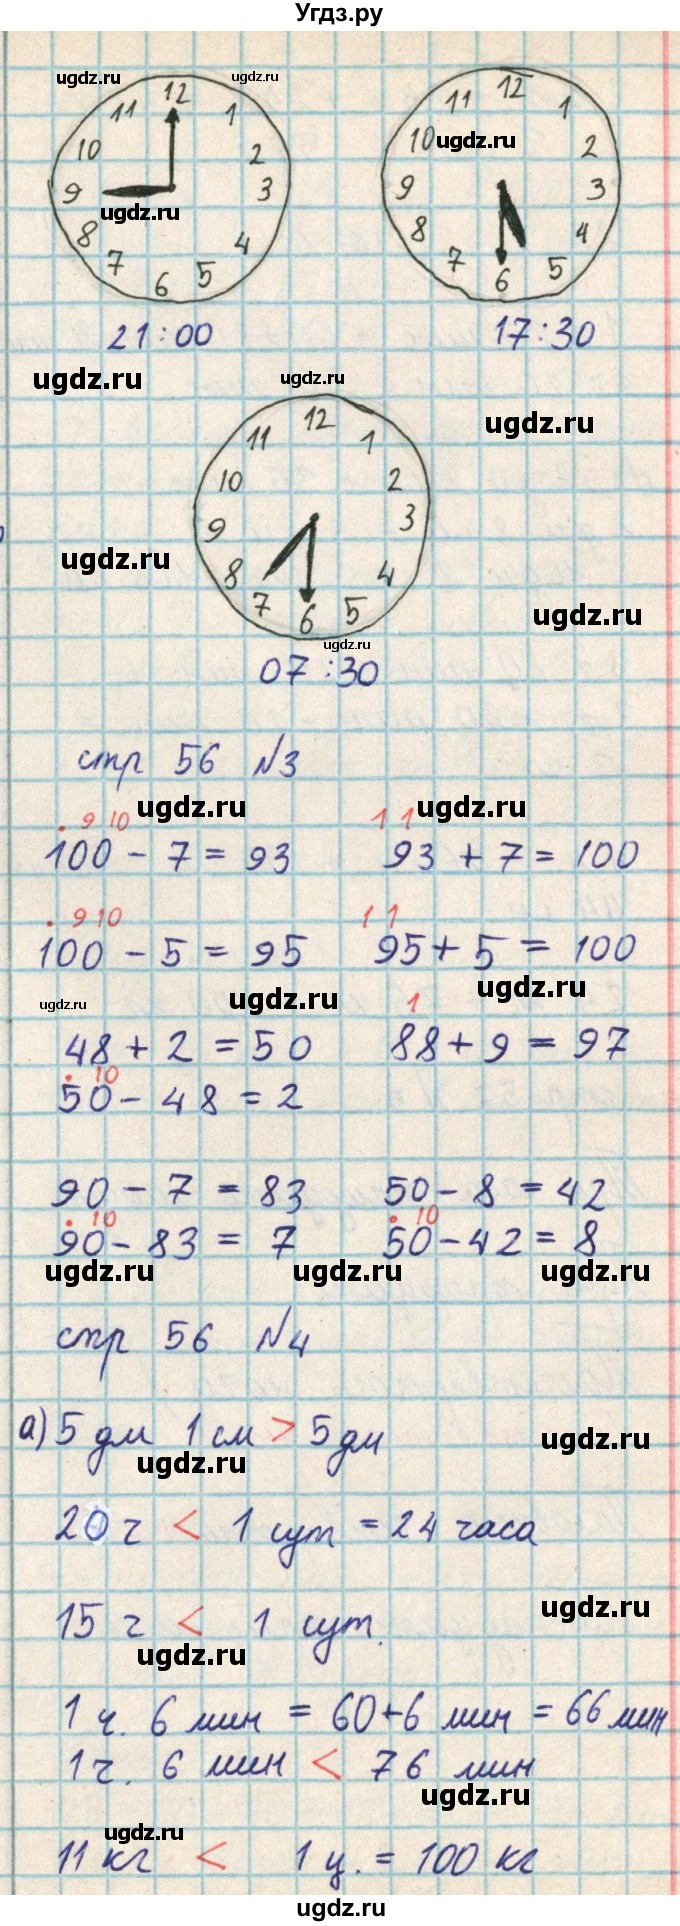 Угдз.ру
ugdz.ru ugdz.ru
12 1 2 3 4 5 6 7 8 9 10 11
ugdz.ru
12 1 2 3 4 5 6 7 8 9 10 11
ugdz.ru
21:00 17:30
ugdz.ru ugdz.ru
ugdz.ru
12 1 2 3 4 5 6 7 8 9 10 11
ugdz.ru
ugdz.ru
ugdz.ru
07:30
стр 56 №3
ugdz.ru ugdz.ru
. 9 10 1 1
100 - 7 = 93 93 + 7 = 100
. 9 10 1 1
100 - 5 = 95 95 + 5 = 100
ugdz.ru ugdz.ru ugdz.ru
1
48 + 2 = 50 88 + 9 = 97
. 10
50 - 48 = 2
90 - 7 = 83 50 - 8 = 42
. 10 . 10
90 - 83 = 7 50 - 42 = 8
ugdz.ru ugdz.ru ugdz.ru
стр 56 №4
а) 5 дм 1 см > 5 дм
ugdz.ru ugdz.ru
20 ч < 1 сут = 24 часа
15 ч < 1 сут.
ugdz.ru ugdz.ru
1 ч. 6 мин = 60+6 мин = 66 мин
1 ч. 6 мин < 76 мин
ugdz.ru
ugdz.ru
11 кг < 1 ц. = 100 кг
ugdz.ru